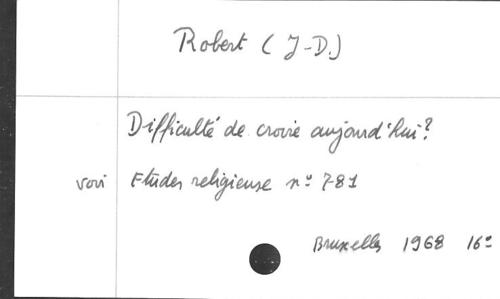 Robert (J-D.)
Difficulté de croire aujourd'hui?
voir Etudes religieuse nº 781
Bruxelles 1968 16º